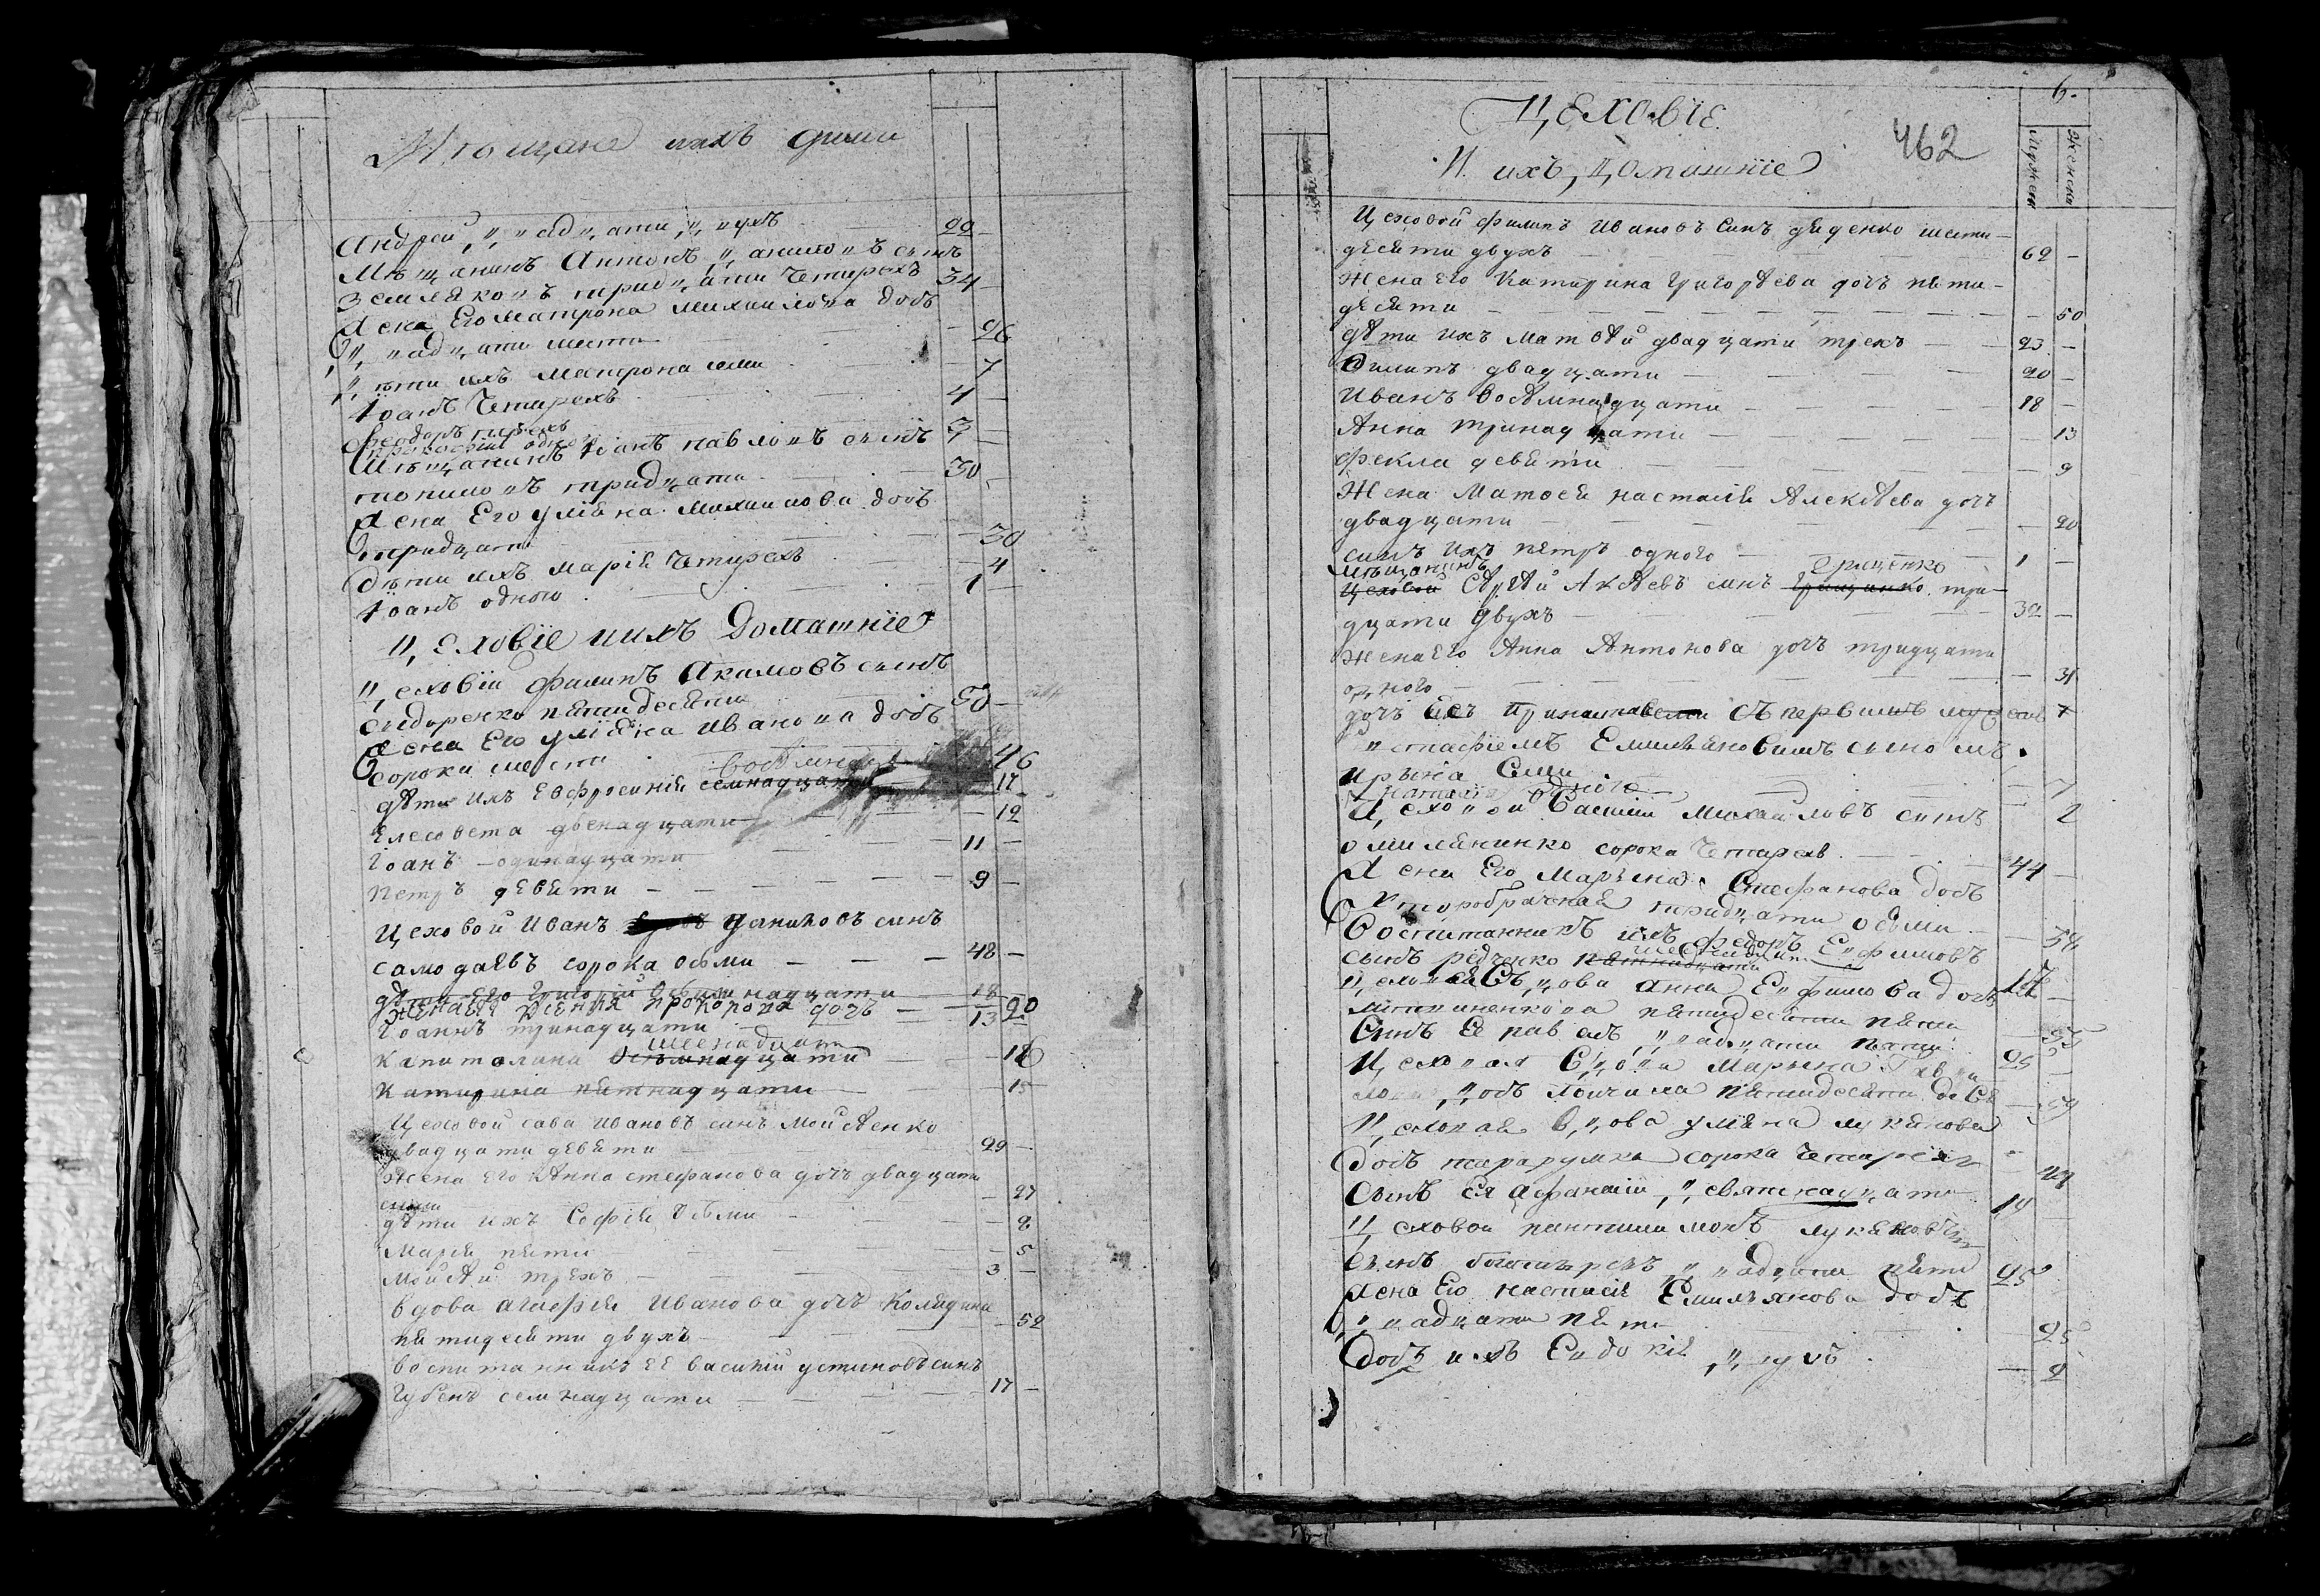 Мѣщане ихъ
Андрей двадцати двухъ 22 —
Мѣщанинъ Антонъ сынъ
Земляковъ тридцати четирехъ 34 —
Жена Его Матрона Михаилова дочь
двадцати шести — 26
дѣти ихъ Матрона семи — 7
Іоанъ Четирехъ 4 —
Феодоръ трехъ 3 —
Прокофій одного
Мѣщанинъ Іоанъ павловъ сынъ
тридцати 30 —
Жена Его уліяна Михаилова дочь
тридцати — 30
дѣти ихъ Марія Четирехъ — 4
Іоанъ одного 1 —
Цеховіе и ихъ Домашніе
Цеховій филипъ Акимовъ сынъ
сидоренко пятидесяти 50 —
Жена Его уліяна Иванова дочь
сорока шести 46
дѣти Ихъ Евфросинія семнадцати — 17
Елесовета двенадцати — 12
Іоанъ — одинадцати 11 —
Петръ девяти — 9 —
Цеховой Иванъ даниловъ синъ
самодаевъ сорока осьми — 48 —
дѣти Его Григорій Осьмнадцати 18 —
жена Его Ксенія прокопова дочъ — 20
Іоаннъ тринадцати 13
шеснадцати
Капитолина осьмнадцати — 16
Катирина пятнадцати — 15
Цеховой сава Ивановъ синъ Мойсѣенко
двадцати девяти 29 —
Жена Его Анна стефанова дочъ двадцати
семи — 27
дѣти ихъ Софія Осьми — 8
Марія пяти — 5
Мойсѣй трехъ — 3 —
вдова агафія Иванова дочъ
пятидесяти двухъ — 52
воспитанникъ ее василій устиновъ синъ
Губенъ семнадцати 17 —
6.
Цеховіе
462
И ихъ домашніе
Мужеск Женска
Цеховой филипъ Ивановъ Синъ дяденко шести-
десяти двухъ 62 —
Жена Его Катирина Григорѣева дочъ пяти-
десяти — 50
дѣти ихъ Матвѣй двадцати трехъ — 23 —
Филипъ двадцати — 20 —
Иванъ восѣмнадцати — 18 —
Анна тринадцати — 13
Фекла девяти — 9
Жена Матвея настасія Алексѣева дочъ
двадцати — 20
синъ ихъ петръ одного — 1 —
мѣщанинъ Гриценко
Цеховой Сергѣй Аксѣевъ синъ три-
дцати двухъ 32 —
Жена Его Анна Антонова дочъ тридцати
одного — 31
дочъ Ее съ первимъ мужемъ
Емиліяновимъ сыномъ
Ирына Семи — 7
одного 2
Цеховой Василій Михайловъ сынъ
омиляненко сорока Четирехъ 44 —
Жена Его Марьяна Стефанова дочь
второбрачная тридцати осьми — 38
Воспитанникъ ихъ Федоръ Ефимовъ
сынъ редченко 17 —
Цеховая вдова Анна Ефимова дочь
пятидесяти пяти — 55
Синъ Ее павелъ двадцати пяти 25 —
Цеховая вдова Марьяна
пятидесяти де — 59
Цеховая вдова уляна лукянова
дочь тарарушка сорока Четирехъ — 44
Сынъ Ея Афанасій девятнадцати 19
Цеховой пантилимонъ лукяновъ
сынъ двадцати пяти 25
Жена Его настасія Емильянова дочь
двадцати пяти 25
дочь ихъ Евдокія двухъ — 2